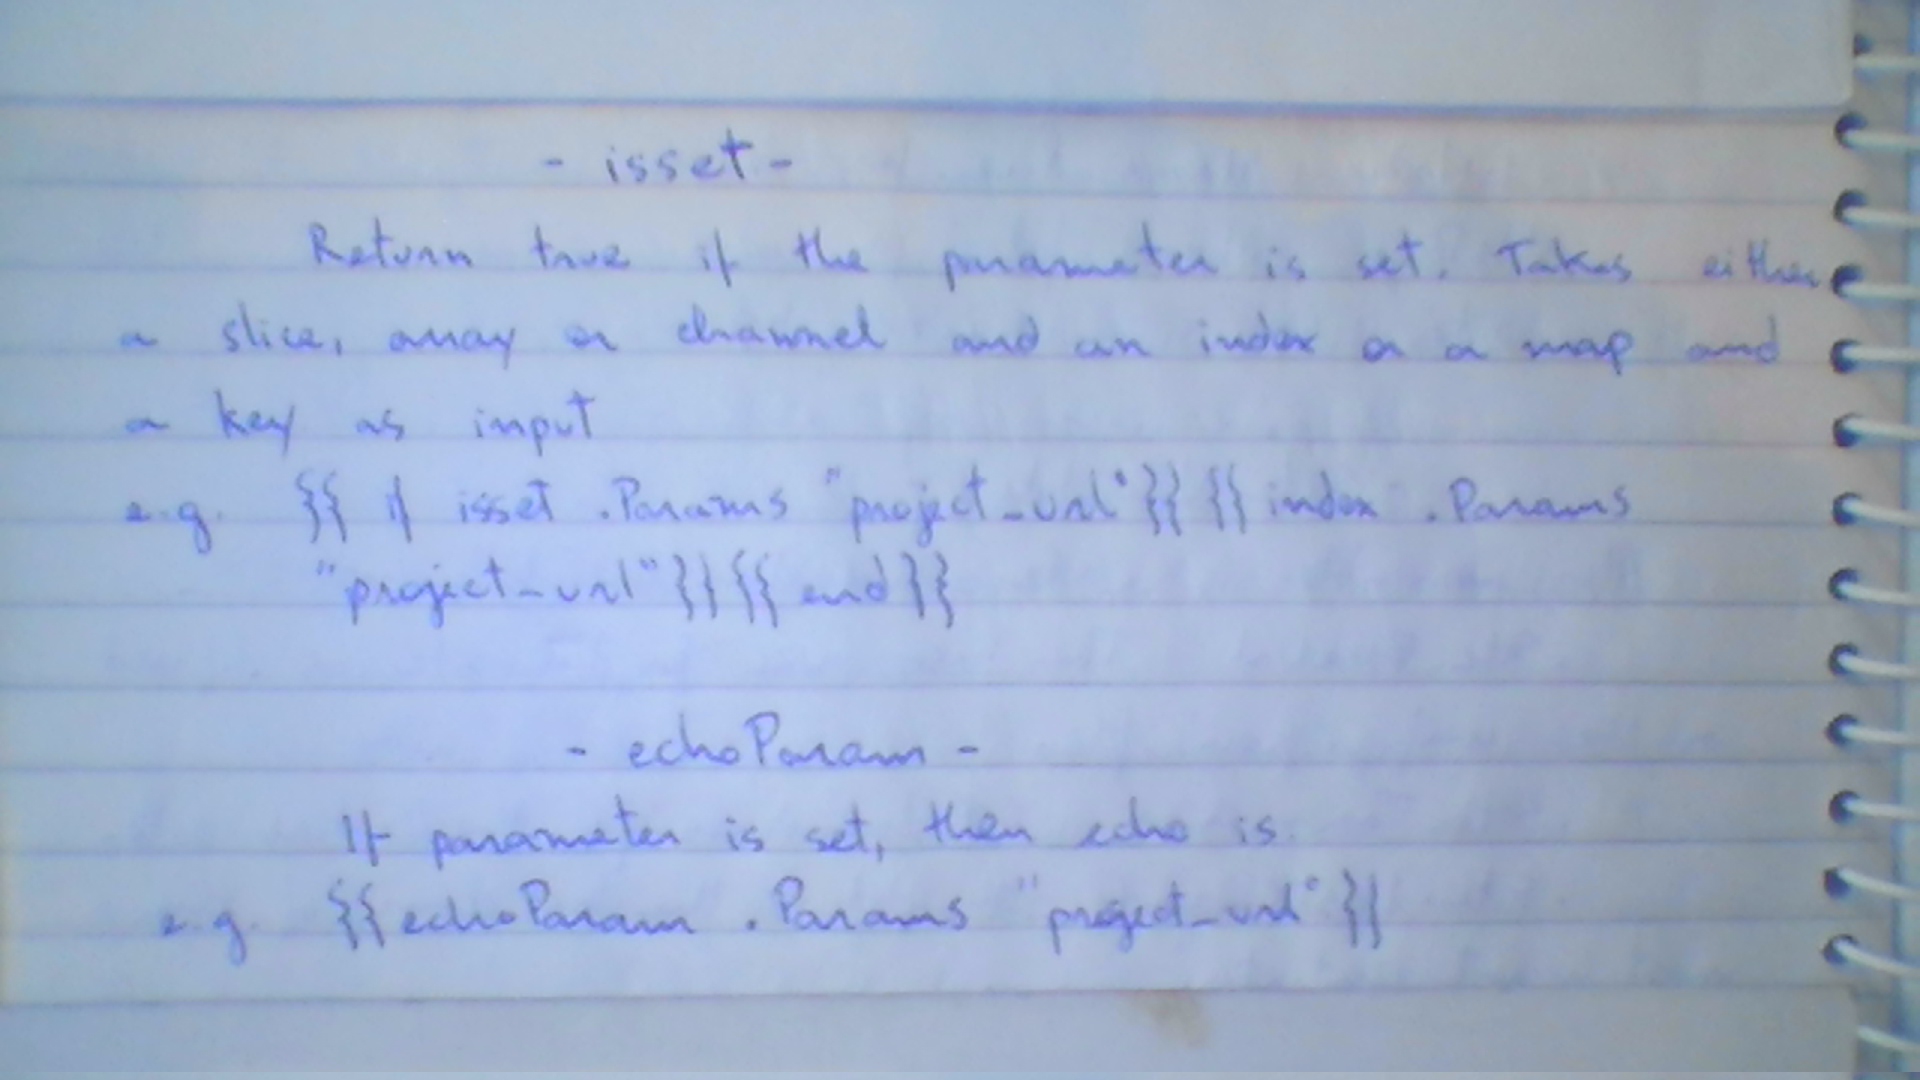 - isset -
Return true if the parameter is set. Takes either
a slice, array or channel and an index or a map and
a key as input
e.g. {{ if isset .Params "project_url" }} {{ index .Params
"project_url" }} {{ end }}
- echoParam -
If parameter is set, then echo is.
e.g. {{ echoParam .Params "project_url" }}